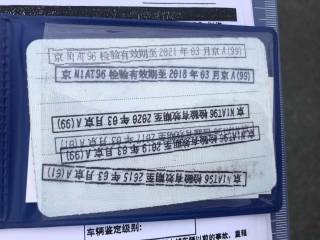 京 N1AT96 检验有效期至 2021 年 03 月京 A(99)
京 N1AT96 检验有效期至 2018 年 03 月京 A(99)
京 N1AT96 检验有效期至 2020 年 03 月京 A(99)
京 N1AT96 检验有效期至 2019 年 03 月京 A(99)
京 N1AT96 检验有效期至 2015 年 03 月京 A(61)
车辆鉴定级别: